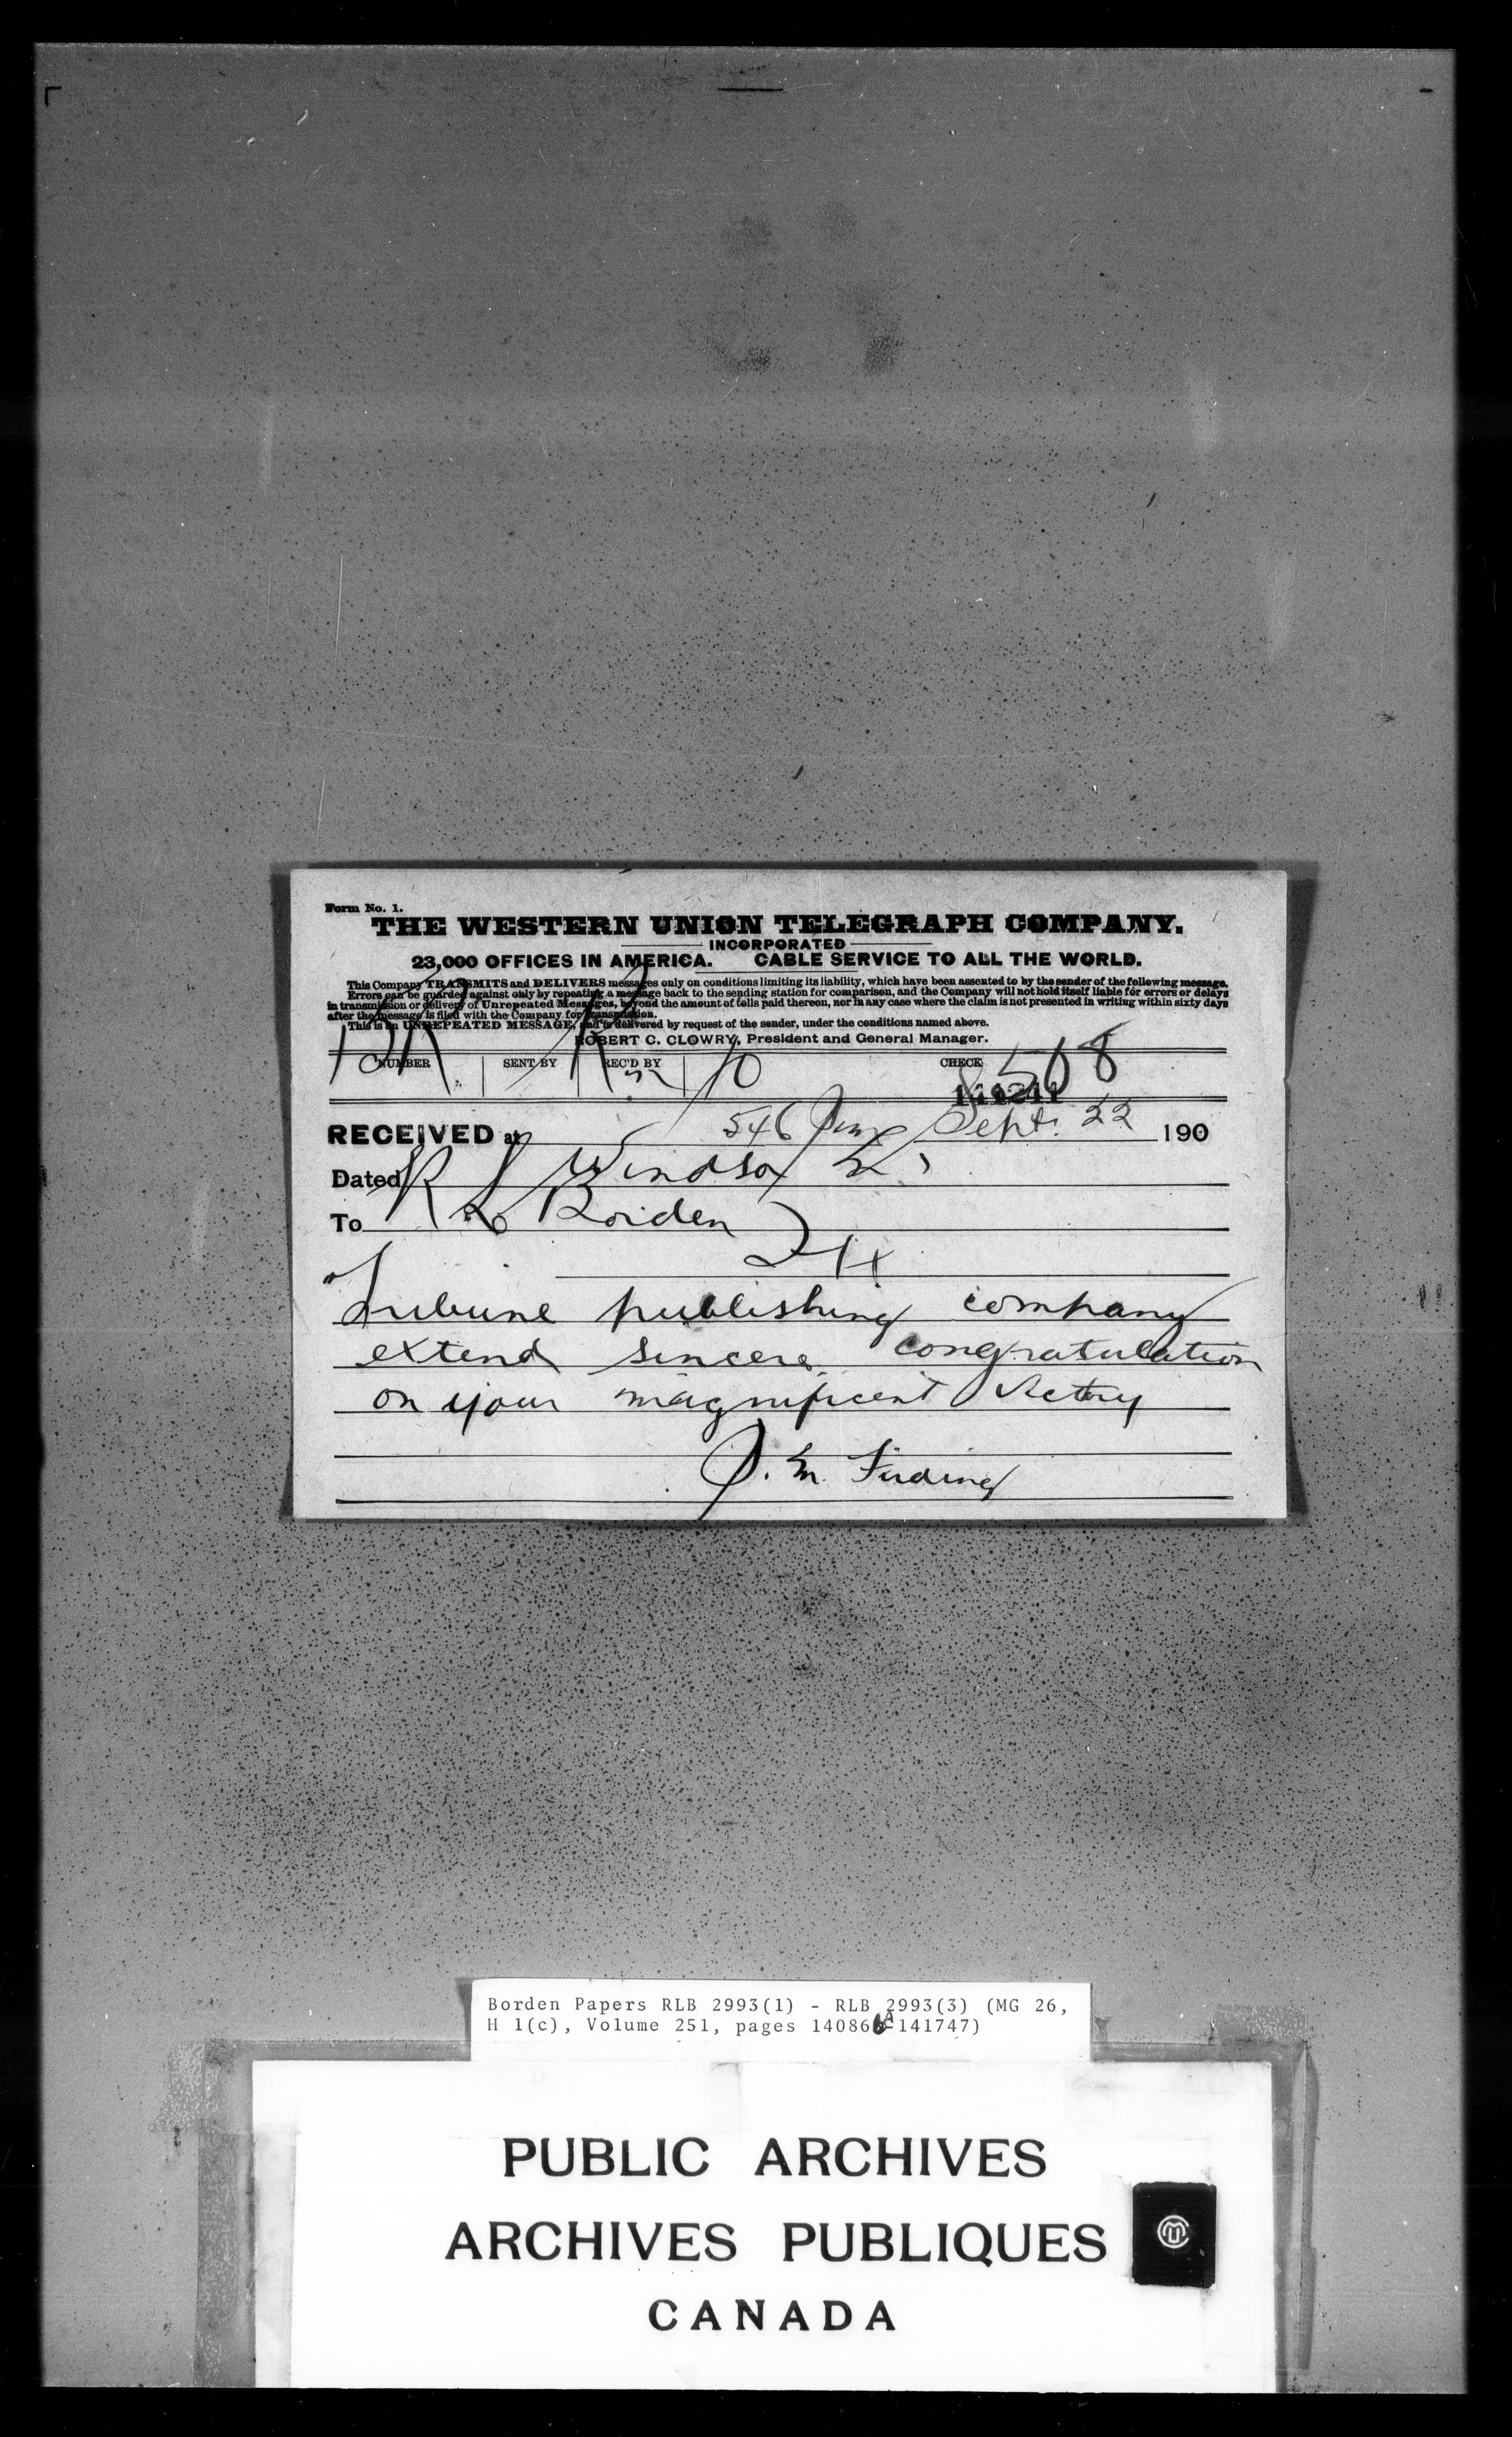 Form No. 1.
THE WESTERN UNION TELEGRAPH COMPANY.
INCORPORATED
23,000 OFFICES IN AMERICA. CABLE SERVICE TO ALL THE WORLD.
This Company TRANSMITS and DELIVERS messages only on conditions limiting its liability, which have been assented to by the sender of the following message.
Errors can be guarded against only by repeating a message back to the sending station for comparison, and the Company will not hold itself liable for errors or delays
in transmission or delivery of Unrepeated Messages, beyond the amount of tolls paid thereon, nor in any case where the claim is not presented in writing within sixty days
after the message is filed with the Company for transmission.
This is an UNREPEATED MESSAGE, and is delivered by request of the sender, under the conditions named above.
ROBERT C. CLOWRY, President and General Manager.
NUMBER SENT BY REC'D BY 10 CHECK 508
RECEIVED at 546 Sept. 22 190
Dated Windsor
To R L Borden
Tribune publishing company
extend sincere congratulation
on your magnificent victory
Borden Papers RLB 2993(1) - RLB 2993(3) (MG 26,
H 1(c), Volume 251, pages 140866A-141747)
PUBLIC ARCHIVES
ARCHIVES PUBLIQUES
CANADA